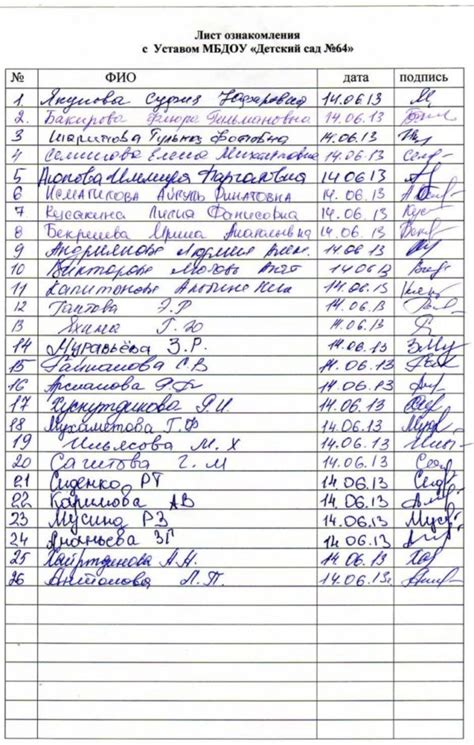 Лист ознакомления
с Уставом МБДОУ «Детский сад №64»
№ ФИО дата подпись
1 Якупова 14.06.13
2. Бакирова Флюра 14.06.13
3 Шарипова Гульназ 14.06.13
4 Семенова Елена Михайловна 14.06.13
5 14.06.13
6 Исмагилова Айгуль Ринатовна 14.06.13
7 Кусакина Лилия Фанисовна 14.06.13 Кус
8 Бекрешева Ирина Анатольевна 14.06.13
9 Андриянова Людмила 14.06.13
10 Викторова Любовь 14.06.13
11 Капитонова Альбина 14.06.13
12 Гаитова Э.Р 14.06.13
13 Яхина Г. Ю 14.06.13
14 Муравьёва З.Р. 14.06.13 ЗМу
15 С В 14.06.13
16 Арсланова 14.06.13
17 Хуснутдинова Р.И. 14.06.13
18 Мухаметова Г.Ф 14.06.13
19 Ильясова М. Х 14.06.13
20 Сагитова Г. М 14.06.13
21 Сиденко РТ 14.06.13
22 Каримова АВ 14.06.13
23 Мусина РЗ 14.06.13
24 Ананьева ЗГ 14.06.13
25 Хайртдинова А.Н. 14.06.13
26 Антонова Л.П. 14.06.13